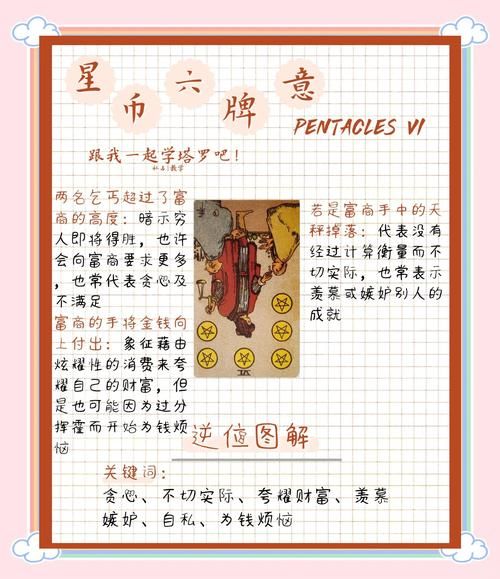 星币六牌意
PENTACLES VI
跟我一起学塔罗吧！
两名乞丐超过了富
商的高度：暗示穷
人即将得胜，也许
会向富商要求更多
，也常代表贪心及
不满足
富商的手将金钱向
上付出：象征藉由
炫耀性的消费来夸
耀自己的财富，但
是也可能因为过分
挥霍而开始为钱烦
恼
若是富商手中的天
秤掉落：代表没有
经过计算衡量而不
切实际，也常表示
羡慕或嫉妒别人的
成就
VI
逆位图解
关键词：
贪心、不切实际、夸耀财富、羡慕
嫉妒、自私、为钱烦恼